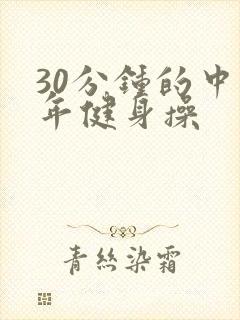 30分鍾的中
年健身操
青絲染霜